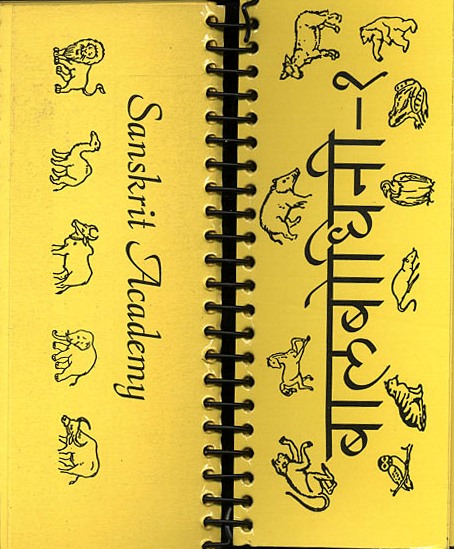 Sanskrit Academy
बालबोधिनी-१